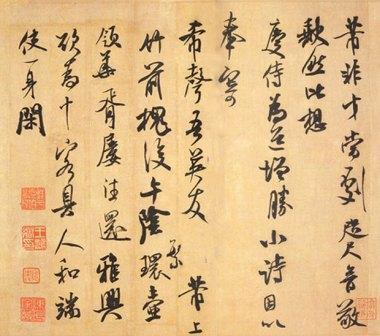 芾非才當劇咫尺音敬
缺然比想
慶侍為道增勝小詩因以
奉寄
希聲吾英友 芾上
竹前槐後午陰繁環壺
領華胥屢往還雅興
欲為十客具人和端
使一身閑